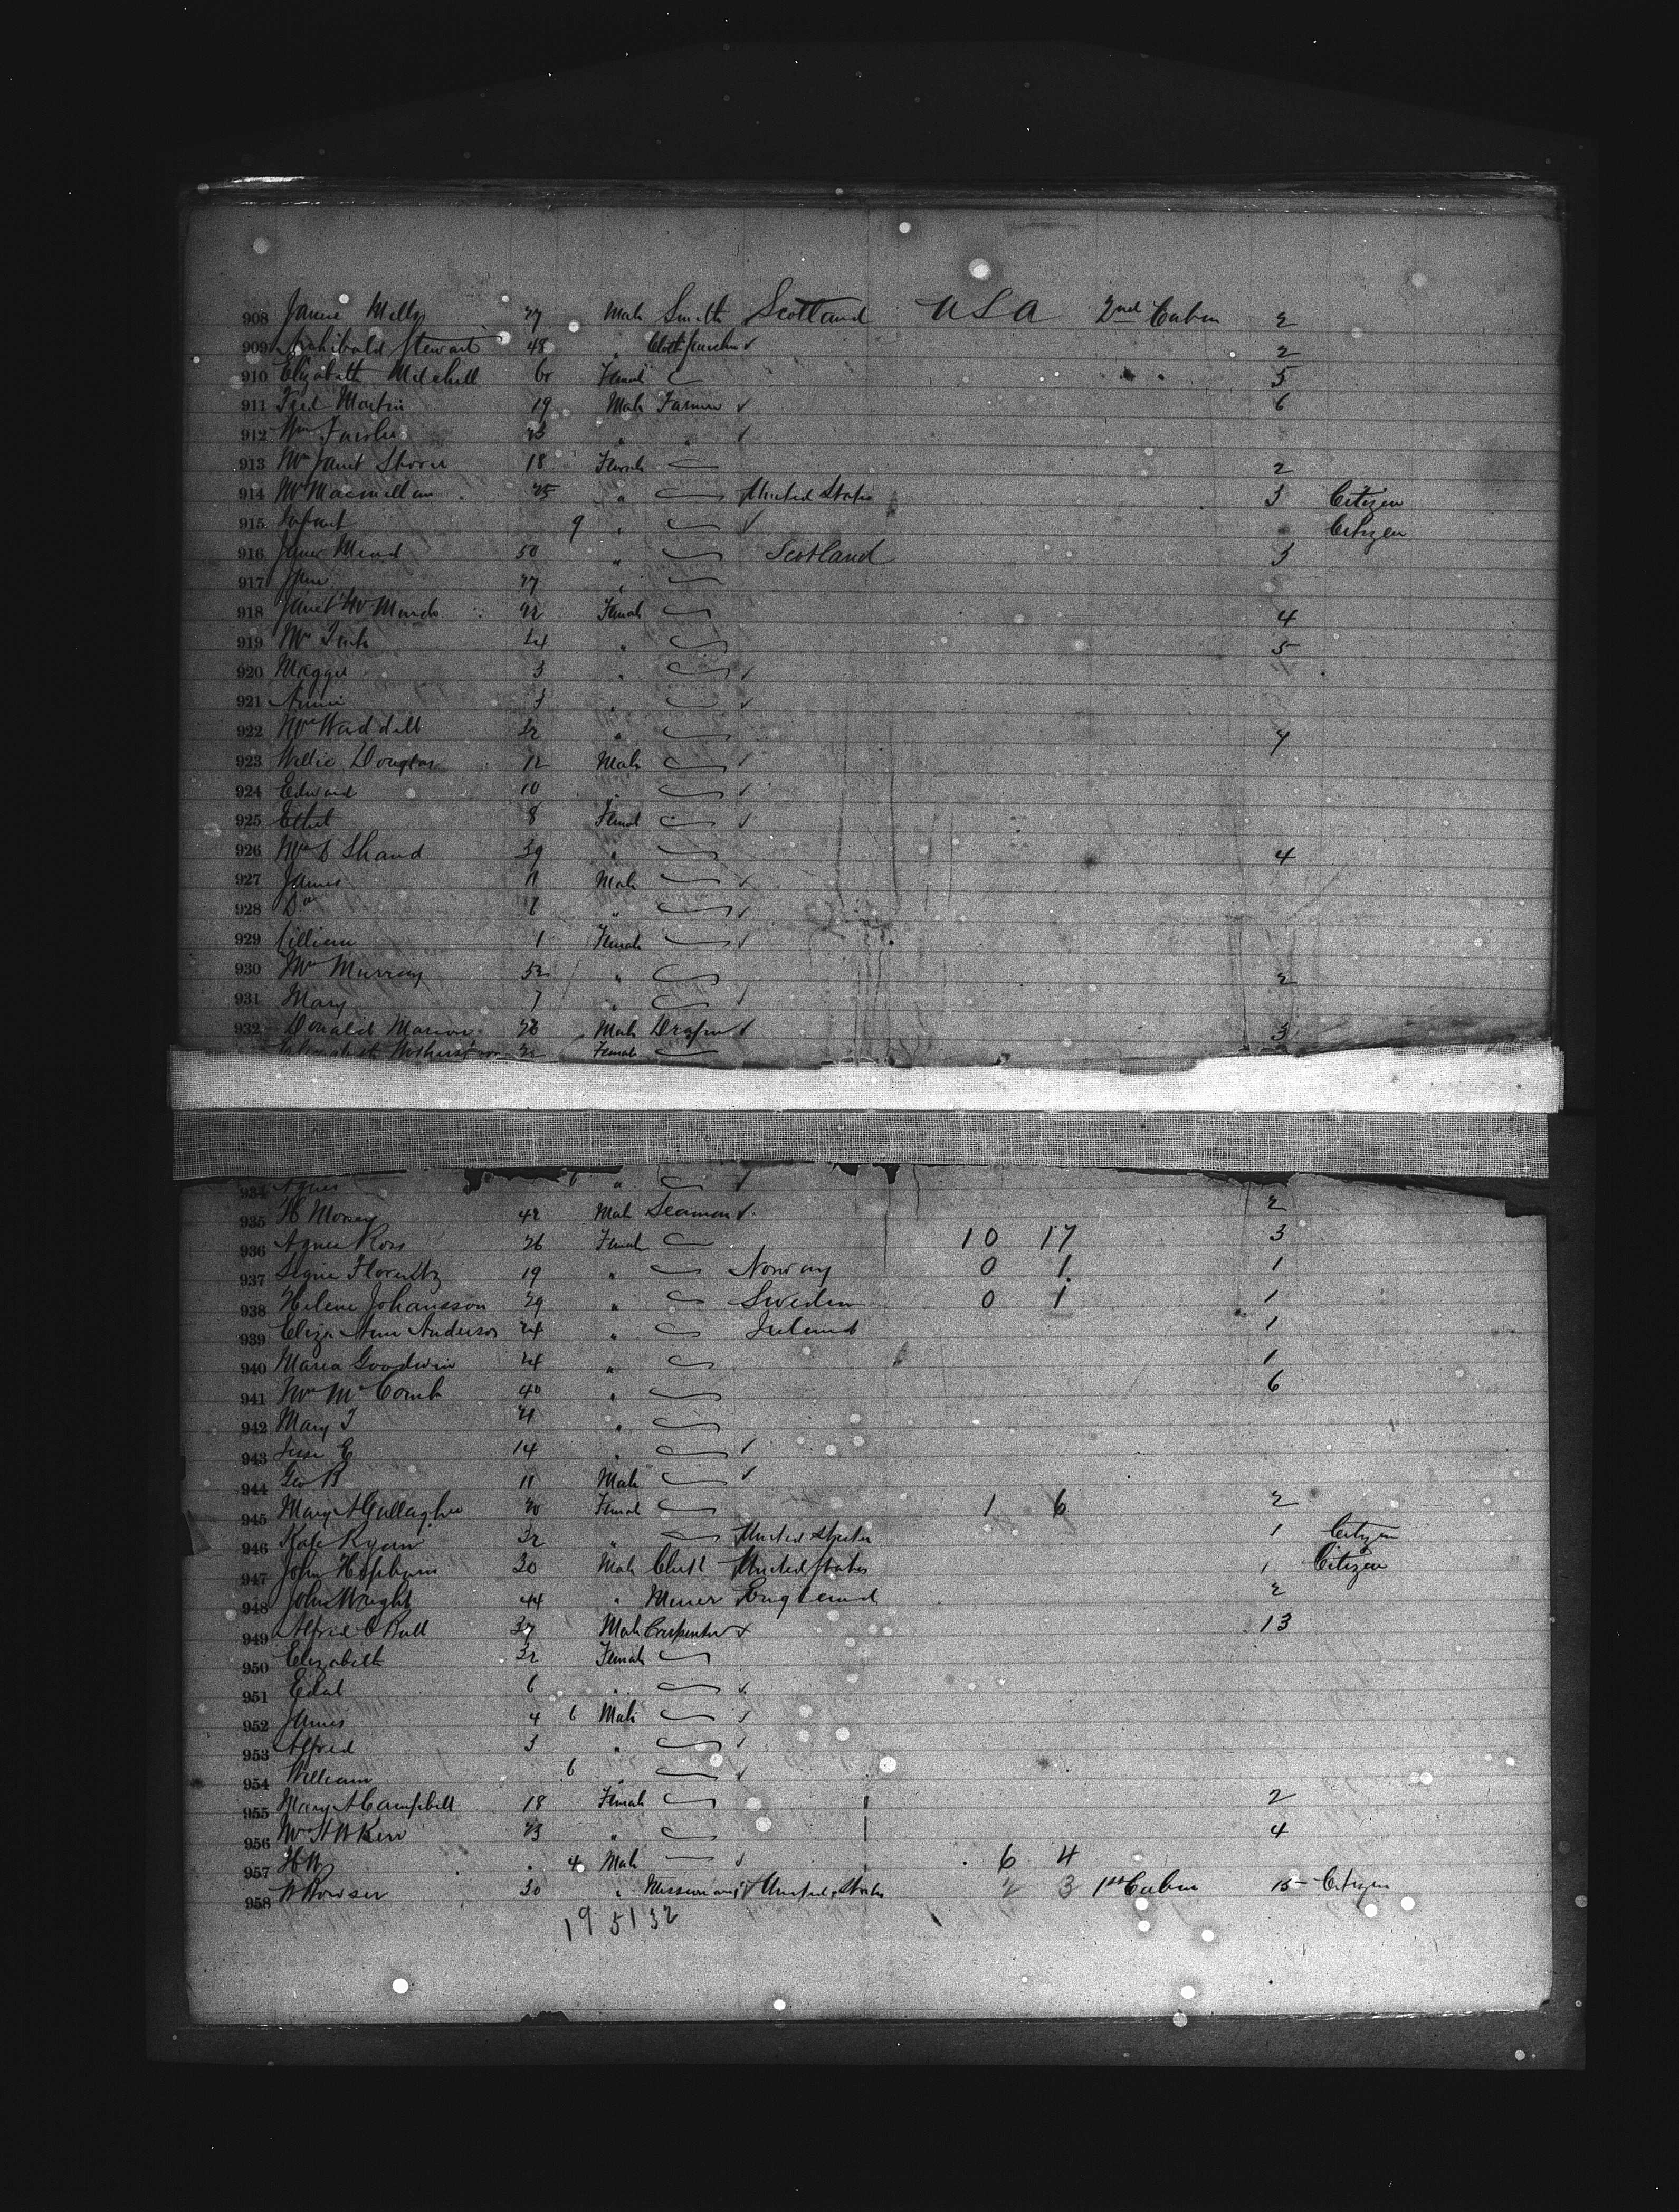 908 Mills 27 Male Smith Scotland USA 2nd Cabin 2
909 Archibald Stewart 48 " 2
910 Elizabeth Mitchell Female 5
911 Fred Martin 19 Male Farmer ✓ 6
912 Wm " " ✓
913 Mrs Janet 18 Female 2
914 Mrs Macmillan 25 " United States 3 Citizen
915 Infant 9 " ✓ Citizen
916 50 " Scotland 3
917 27 "
918 Janet 22 Female 4
919 Mrs "  5
920 Maggie 3 " ✓
921 Annie 3 " ✓
922 Mrs Waddell 32 "
923 Willie Douglas 12 Male ✓
924 Edward 10 " ✓
925 Ethel 8 Female ✓
926 Mrs Shand 39 " 4
927 James 11 Male ✓
928 Do 6 " ✓
929 Lillian 1 Female ✓
930 Mrs Murray 52 " 2
931 Mary 7 " ✓
932 Donald 26 Male Draper ✓ 3
Female
934 Agnes 6 " ✓
935 H 42 Male Seaman ✓ 2
936 Agnes Ross 26 Female 10 17 3
937 Signe 19 " Norway 0 1 1
938 Helene Johansson 29 " Sweden 0 1 1
939 Eliza Ann Anderson 24 " Ireland 1
940 Maria Goodwin 24 " 1
941 Mrs McComb 40 " 6
942 Mary J 21 "
943 E 14 " ✓
944 Geo B 11 Male ✓
945 Mary A Gallagher 20 Female 1 6 2
946 Kate Ryan 32 " United States 1 Citizen
947 John Hepburn 30 Male Clerk United States 1 Citizen
948 John Wright 44 " Miner England 2
949 Alfred Bull 37 Male Carpenter ✓ 13
950 Elizabeth 32 Female
951 6 " ✓
952 James 4 6 Male ✓
953 Alfred 3 " ✓
954 William 6 " ✓
955 Mary A Campbell 18 Female 2
956 Mrs H W Kerr 23 " 4
957 H W 4 Male ✓ 6 4
958 30 " Missionary ✓ United States 2 3 1st Cabin 15 Citizen
19 5132